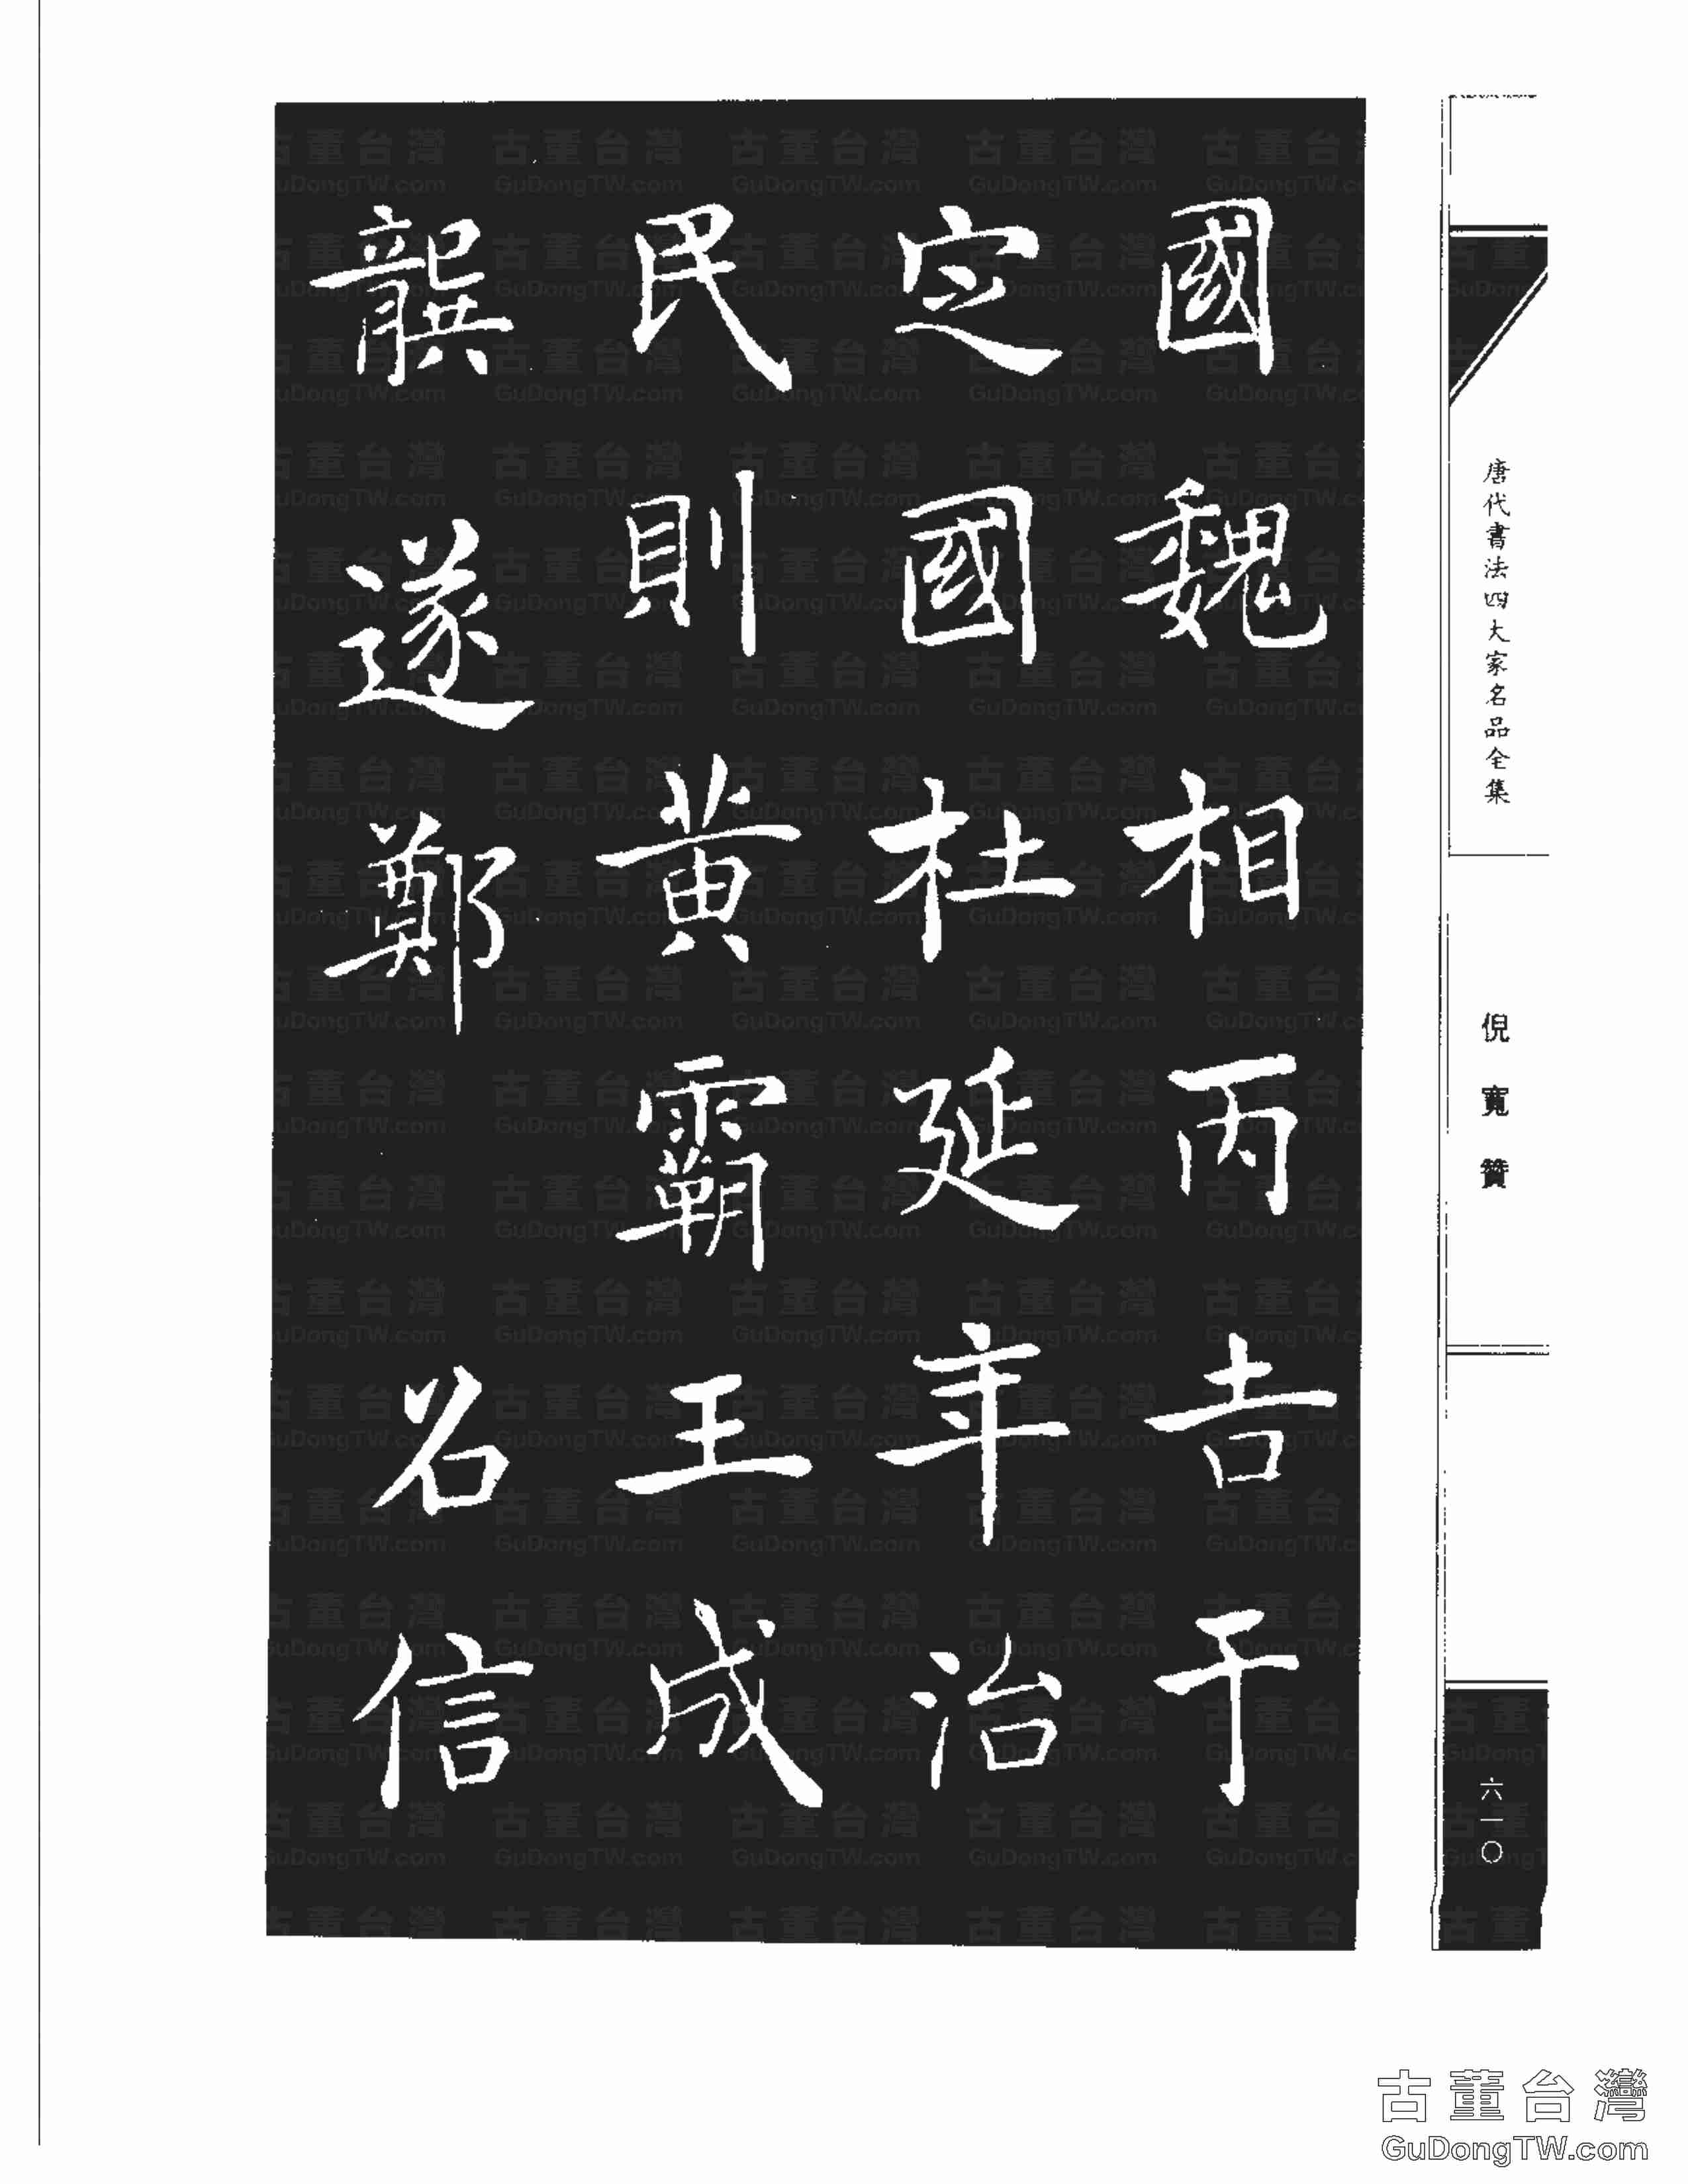 國魏相丙吉于
定國杜延年治
民則黃霸王成
龔遂鄭名信
唐代書法四大家名品全集
倪寬贊
六一〇
古董台灣
GuDongTW.com